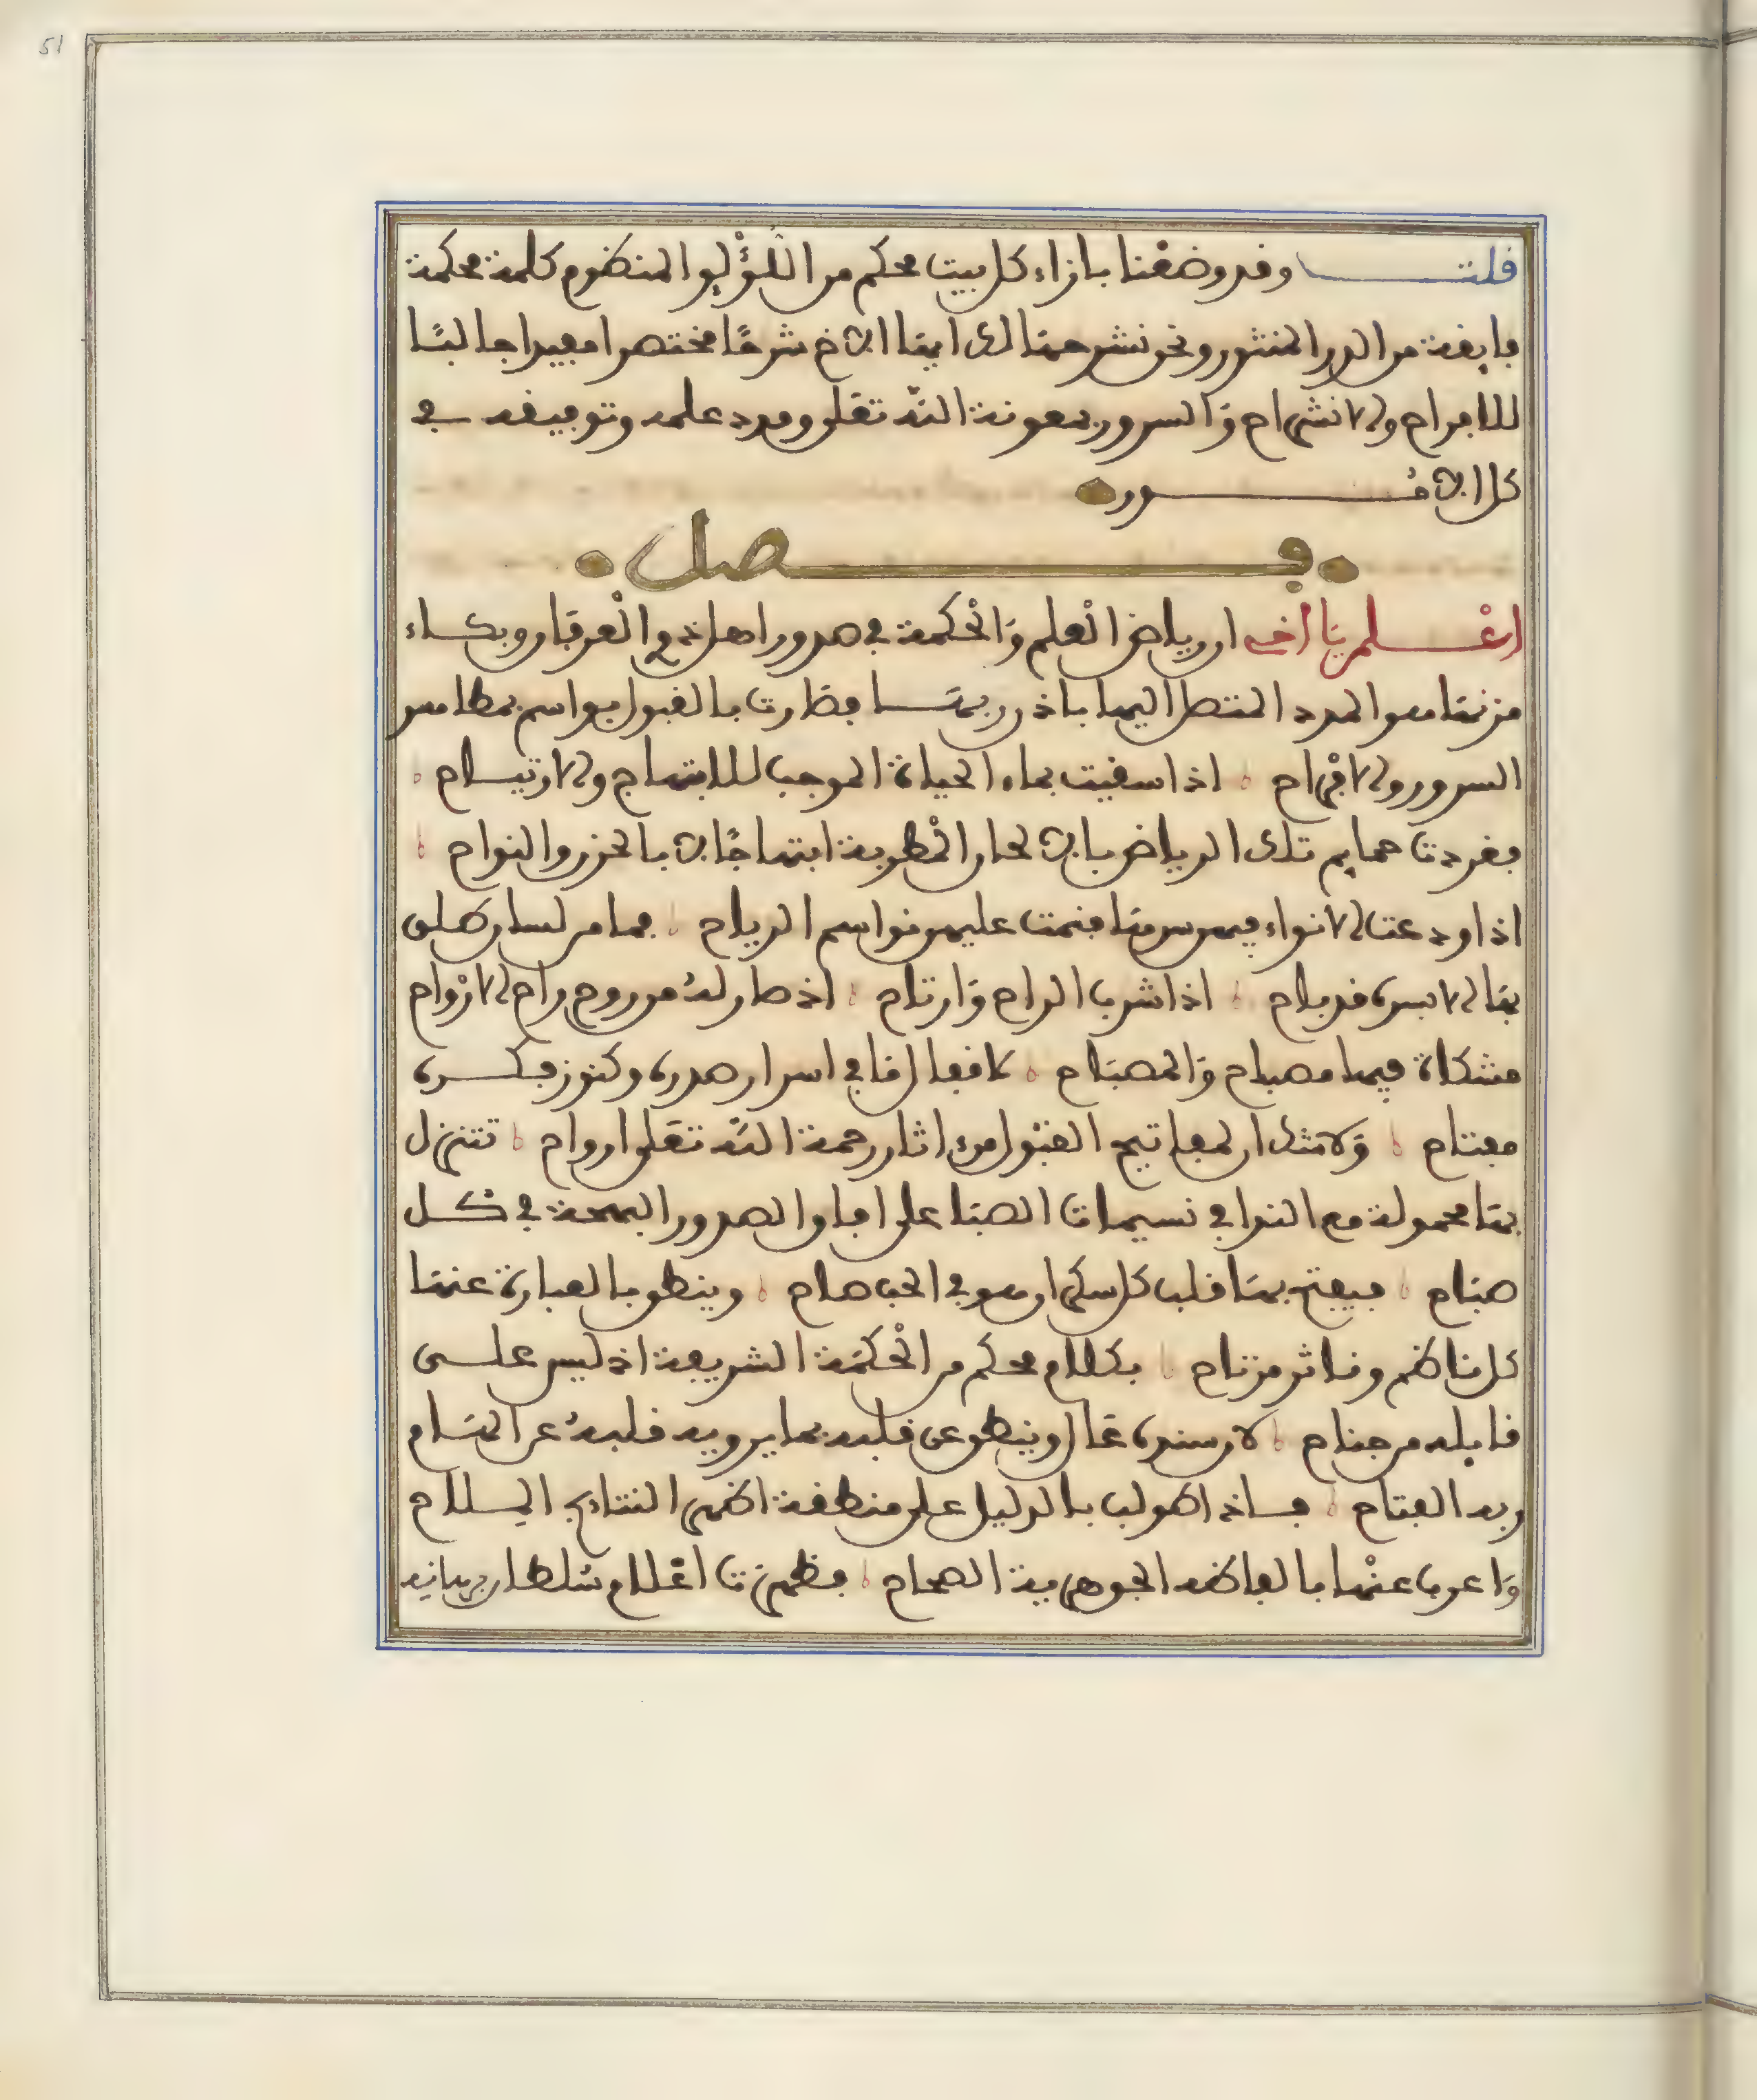 51
قلت وقد وضعنا بازاء كل بيت محكم من اللؤلؤ المنظوم كلمة محكمة
فايقة من الدر المنثور ونحن نشرحها لك ايها الاخ شرحا مختصرا مفيدا جالبا
للافراح والانشراح والسرور بمعونة الله تعلى ومدد علمه وتوفيقه في
كل الامور
فصل
اعلم يا اخي ان رياض العلم والحكمة في صدور اهل ذوي العرفان وبكاء
مزنها هو المدد المتصل اليها باذن ربها فصارت بالقبول مواسم بمطامر
السرور والافراح اذا سقيت بماء الحياة الموجب للابتهاج والارتياح
فغردت حمايم تلك الرياض بالالحان المطربة ابتهاجا لا بالحزن والنواح
اذا اودعت الانواء فيهن سرها فنمت عليهن نواسم الرياح فما من لسان طلق
بها الا بسره قد باح اذا شرب الراح وارتاح اذ صار له من روح راح الارواح
مشكاة فيها مصباح والمصباح لاقفال خافي اسرار صدره وكنوز فكره
مفتاح ولا شك ان لمفاتيح القبول من اثار رحمة الله تعلى ارواح تتنزل
بها محمولة مع النوافي نسيمات الصبا على افاق الصدور البهجة في كل
صباح فيفتح بها قلب كل سكران هو في الحب صاح وينطق بالعبارة عنها
كل ناظم وناثر مزتاح بكلام محكم من الحكمة الشريعة اذ ليس على
قايله من جناح لان سنده عال وينطق عن قلبه بما يرويه قلبه عن الهام
ربه الفتاح فاذا طولب بالدليل على منطقه اظهر النتايج الملاح
واعرب عنها بالفاظه الجوهرية الصحاح فظهرت اعلام سلطان برهانه